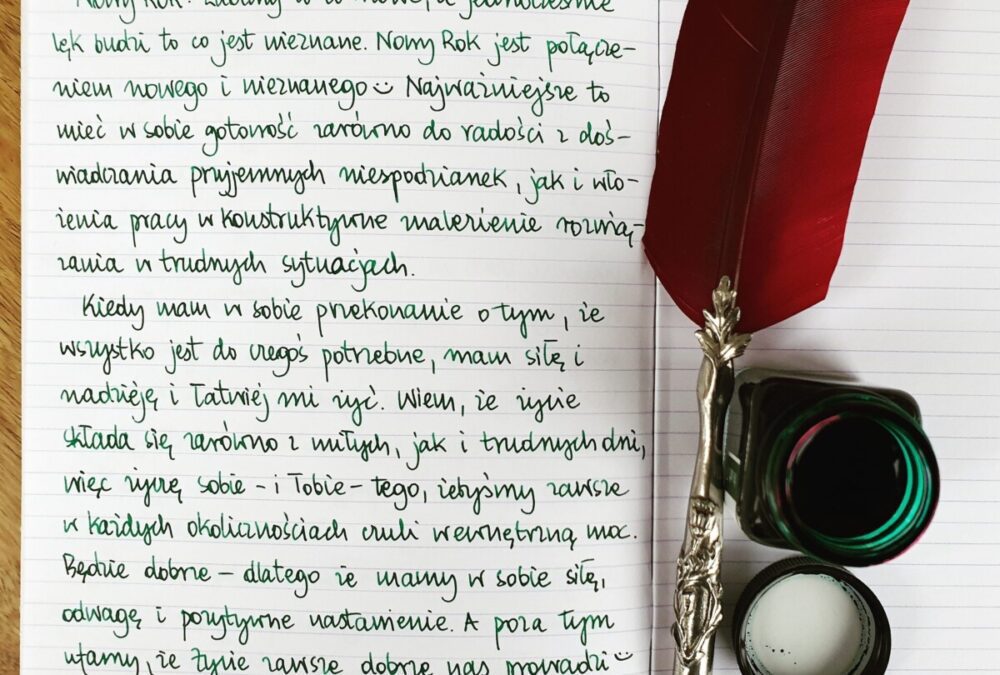 Nowy Rok. to co nowe, a jednocześnie
lęk budzi to co jest nieznane. Nowy Rok jest połącze-
niem nowego i nieznanego :) Najważniejsze to
mieć w sobie gotowość zarówno do radości z doś-
wiadczania przyjemnych niespodzianek, jak i wło-
żenia pracy w konstruktywne znalezienie rozwią-
zania w trudnych sytuacjach.
Kiedy mam w sobie przekonanie o tym, że
wszystko jest do czegoś potrzebne, mam siłę i
nadzieję i łatwiej mi żyć. Wiem, że życie
składa się zarówno z miłych, jak i trudnych dni,
więc życzę sobie - i Tobie - tego, żebyśmy zawsze
w każdych okolicznościach czuli wewnętrzną moc.
Będzie dobrze - dlatego że mamy w sobie siłę,
odwagę i pozytywne nastawienie. A poza tym
ufamy, że życie zawsze dobrze nas prowadzi :)